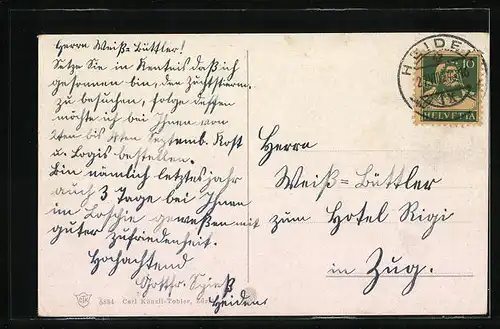 Herrn Weiß-Büttler!
Setze Sie in Kentnis daß ich
gesonnen bin, den Zuchtstierm.
zu besuchen, folge dessen
möchte ich bei Ihnen von
2ten bis 4ten Septemb. Kost
u. Logis bestellen.
Bin nämlich letztes jahr
auch 3 Tage bei Ihnen
im Loschie geweßen mit
guter zufriedenheit.
Hochachtend
Gottfr. Spieß
Heiden
HEIDEN
10
HELVETIA
Herrn
Weiß=Büttler
zum Hotel Rigi
in Zug.
Carl Künzli-Tobler,